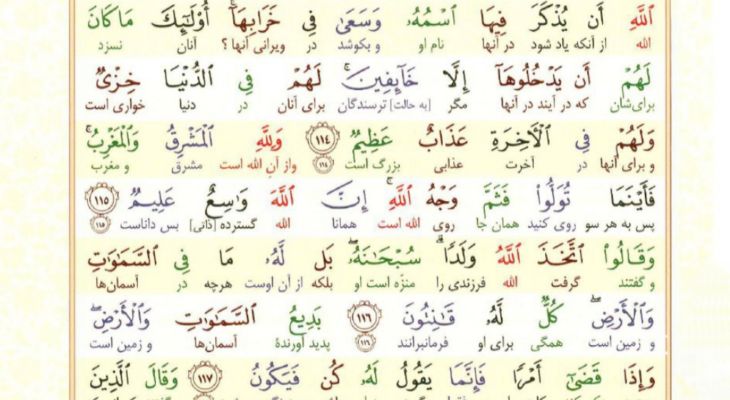 ٱللَّهِ أَن يُذْكَرَ فِيهَا ٱسْمُهُۥ وَسَعَىٰ فِي خَرَابِهَآ ۚ أُوْلَـٰٓئِكَ مَا كَانَ
الله از آنکه یاد شود در آنها نام او و بکوشد در ویرانی آنها ؟ آنان نسزد
لَهُمْ أَن يَدْخُلُوهَآ إِلَّا خَآئِفِينَ ۚ لَهُمْ فِي ٱلدُّنْيَا خِزْيٌ
برای‌شان که در آیند در آنها مگر [به حالت] ترسندگان برای آنان در دنیا خواری است
وَلَهُمْ فِي ٱلْأٓخِرَةِ عَذَابٌ عَظِيمٌ ۝١١٤ وَلِلَّهِ ٱلْمَشْرِقُ وَٱلْمَغْرِبُ ۚ
و برای آنها در آخرت عذابی بزرگ است ١١٤ و از آنِ الله است مشرق و مغرب
فَأَيْنَمَا تُوَلُّواْ فَثَمَّ وَجْهُ ٱللَّهِ ۚ إِنَّ ٱللَّهَ وَٰسِعٌ عَلِيمٌ ۝١١٥
پس به هر سو روی کنید همان جا روی الله است همانا الله گسترده [ذاتی] بس داناست ١١٥
وَقَالُواْ ٱتَّخَذَ ٱللَّهُ وَلَدًا ۗ سُبْحَـٰنَهُۥ ۖ بَل لَّهُۥ مَا فِي ٱلسَّمَـٰوَٰتِ
و گفتند گرفت الله فرزندی را منزّه است او بلکه از آن اوست هرچه در آسمان‌ها
وَٱلْأَرْضِ ۖ كُلٌّ لَّهُۥ قَـٰنِتُونَ ۝١١٦ بَدِيعُ ٱلسَّمَـٰوَٰتِ وَٱلْأَرْضِ ۖ
و زمین است همگی برای او فرمانبرانند ١١٦ پدید آورندهٔ آسمان‌ها و زمین است
وَإِذَا قَضَىٰٓ أَمْرًا فَإِنَّمَا يَقُولُ لَهُۥ كُن فَيَكُونُ ۝١١٧ وَقَالَ ٱلَّذِينَ